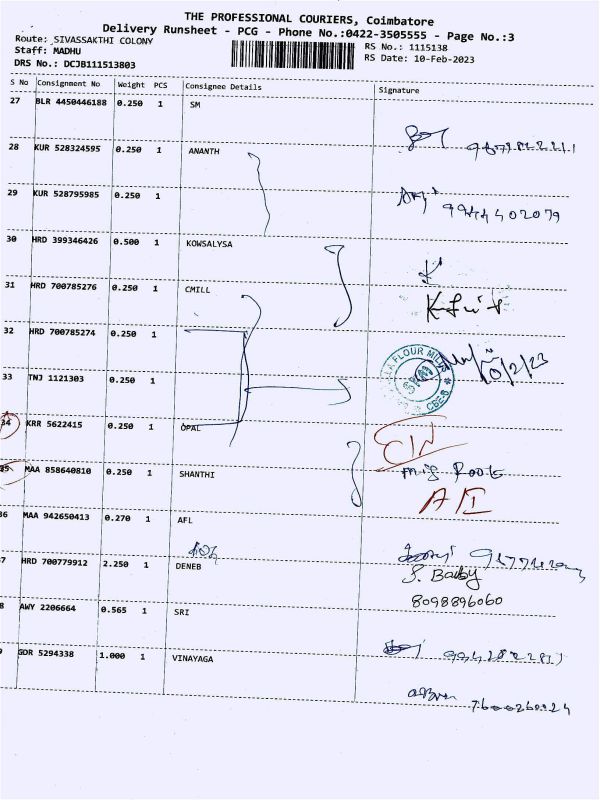 THE PROFESSIONAL COURIERS, Coimbatore
Delivery Runsheet - PCG - Phone No.:0422-3505555 - Page No.:3
Route: SIVASSAKTHI COLONY
RS No.: 1115138
Staff: MADHU
RS Date: 10-Feb-2023
DRS No.: DCJB111513803
S No Consignment No Weight PCS Consignee Details Signature
27 BLR 4450446188 0.250 1 SM
28 KUR 528324595 0.250 1 ANANTH
29 KUR 528795985 0.250 1
9944402079
30 HRD 399346426 0.500 1 KOWSALYSA
K
31 HRD 700785276 0.250 1 CMILL
32 HRD 700785274 0.250 1
FLOUR MILLS
10/2/23
33 TNJ 1121303 0.250 1
CBE-6
34 KRR 5622415 0.250 1 OPAL
35 MAA 858640810 0.250 1 SHANTHI
36 MAA 942650413 0.270 1 AFL
7 HRD 700779912 2.250 1 DENEB
S. Baby
8098896060
8 AWY 2206664 0.565 1 SRI
9 GDR 5294338 1.000 1 VINAYAGA